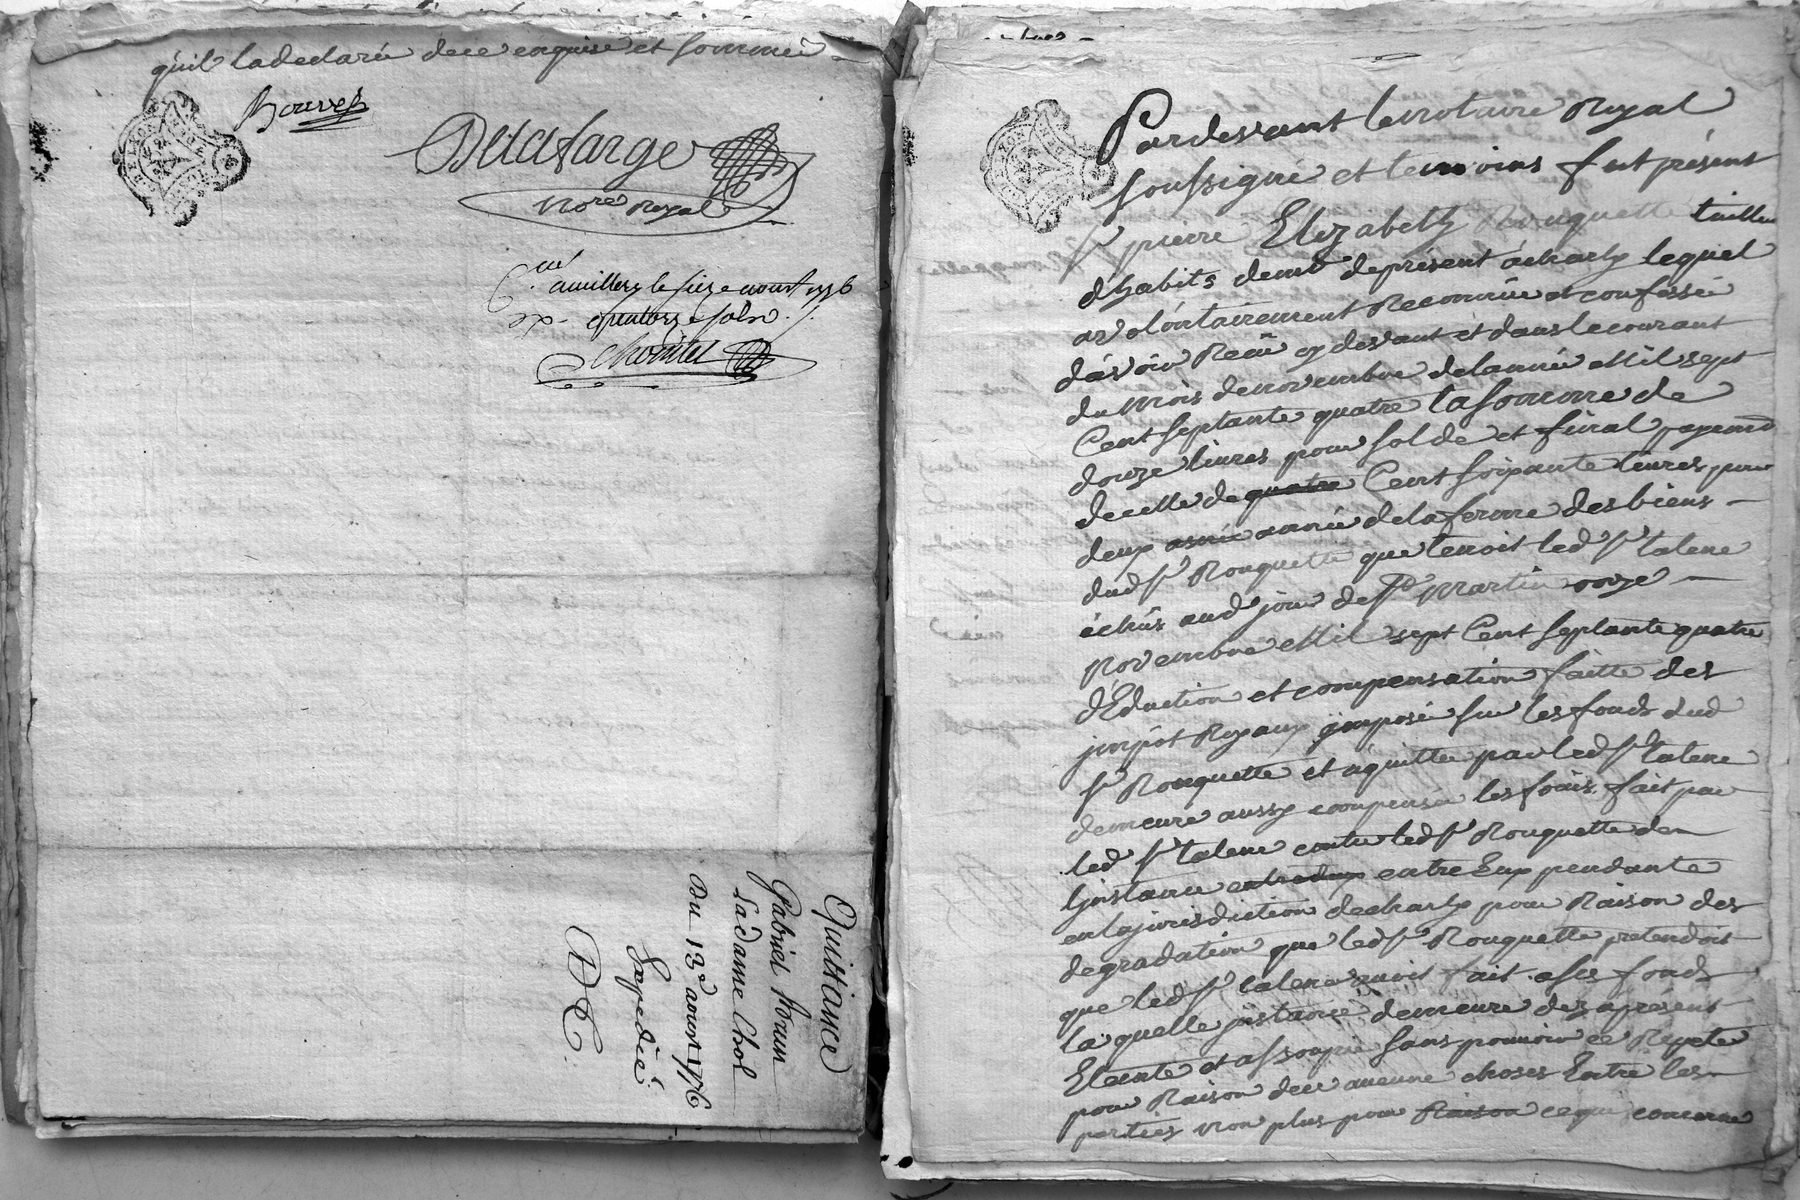 quil ladeclaré dece enquise et sommé
Bouvet
Delafarge
Nore Royal
amillery le seize aoust 1776
quatorze sols
Quittance
Gabriel Brun
La dame Chol
Du 13e aoust 1776
Expedié
Pardevant le notaire Royal
soussigné et temoins fut présent
sr pierre Elizabeth Rouquette tailleur
d'habits demt de présent à charly lequel
a volontairement Reconnu et confessé
d'avoir Receu cy devant et dans le courant
du mois de novembre de lannée Mil sept
Cent septante quatre la somme de
douze livres pour solde et final payemt
de celle de quatre Cent soixante livres pour
deux année de la ferme des biens
dud sr Rouquette que tenoit led sr talene
échûs aud jour de st Martin onze
Novembre Mil sept Cent septante quatre
déduction et compensation faitte des
impôt Royaux imposé sur les fonds dud
sr Rouquette et aquitté par led sr talene
demeure aussy compensé les frais fait par
led sr talene contre led sr Rouquette en
Linstance entre Eux pendante
en la jurisdiction de charly pour Raison des
degradation que led sr Rouquette pretendoit
que led sr talene avoit fait a ses fonds
la quelle instance demeure dez apresent
Eteinte et assoupie sans pouvoir ce Repeter
pour Raison de ce aucune choses Entre les
parties non plus pour Raison ce qui concerne